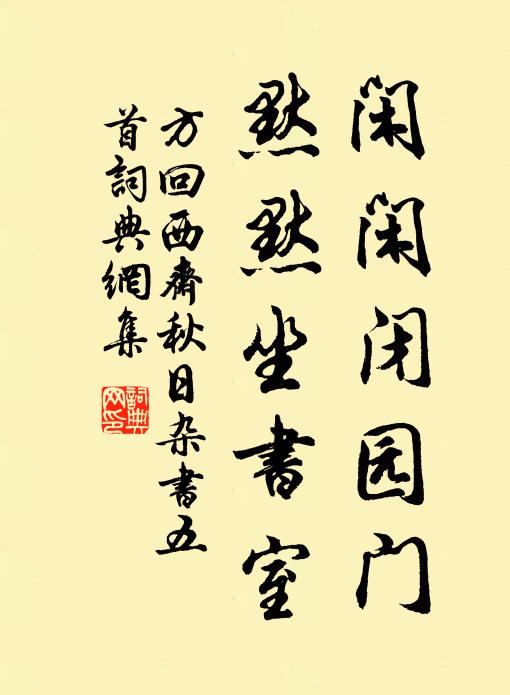 闲闲闭园门
默默坐書室
方回西齋秋日杂書五
首詞典網集
詞典
网印